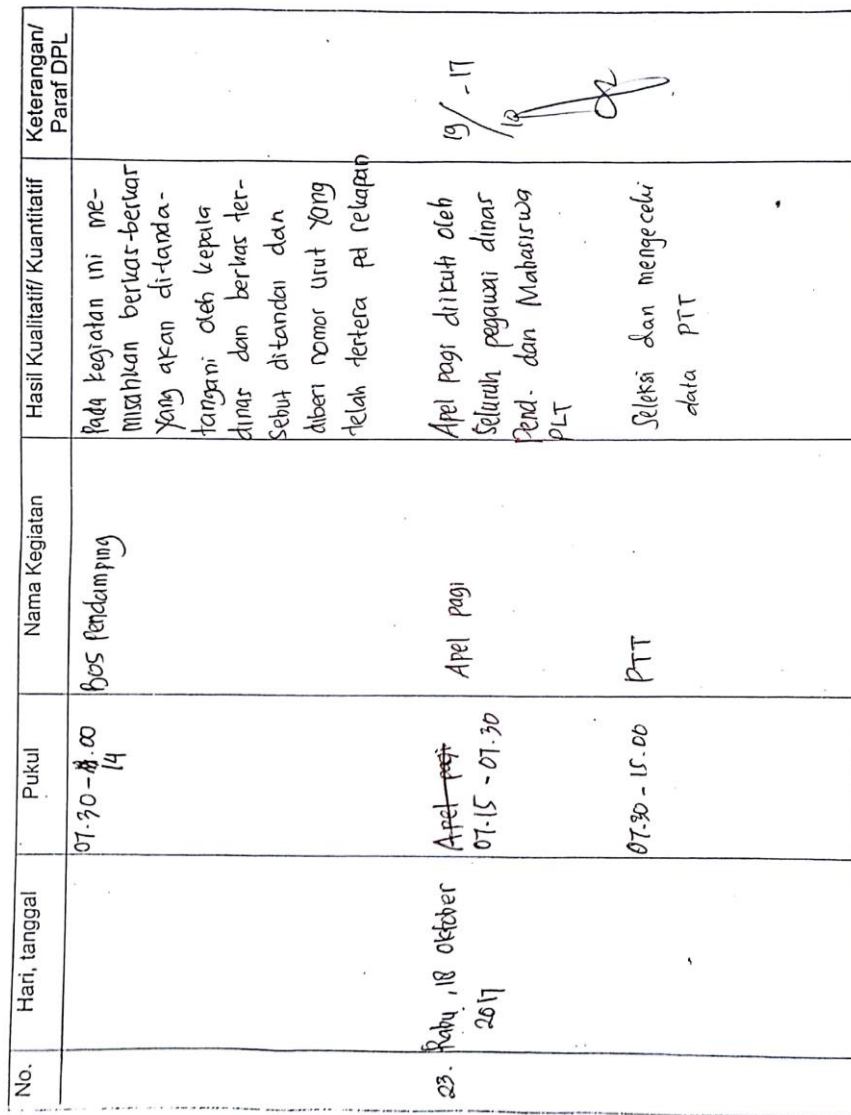 No.
Hari, tanggal
Pukul
Nama Kegiatan
Hasil Kualitatif/ Kuantitatif
Keterangan/
Paraf DPL
07.30 - .00
14
BOS Pendamping
Pada kegiatan ini me-
misahkan berkas-berkas
yang akan ditanda-
tangani oleh kepala
dinas dan berkas ter-
sebut ditandai dan
diberi nomor urut yang
telah tertera pd rekapan
23.
Rabu, 18 Oktober
2017
Apel pagi
07.15 - 07.30
Apel pagi
Apel pagi diikuti oleh
Seluruh pegawai dinas
Pend. dan Mahasiswa
PLT
19/10 -17
07.30 - 15.00
PTT
Seleksi dan mengeceki
data PTT